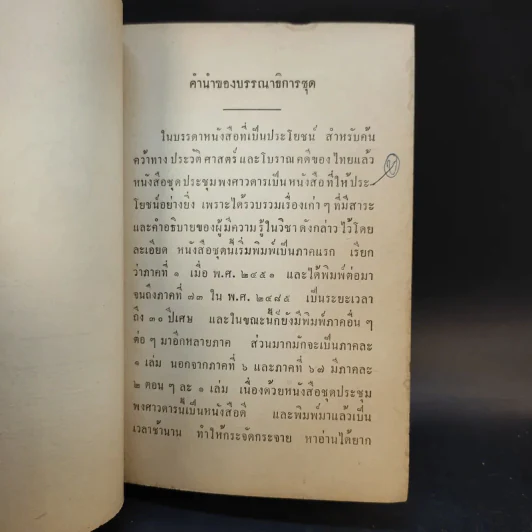 คำนำของบรรณาธิการชุด
ในบรรดาหนังสือที่เป็นประโยชน์ สำหรับค้น
คว้าทาง ประวัติ ศาสตร์ และโบราณ คดีของ ไทยแล้ว
หนังสือชุด ประชุม พงศาวดารเป็น หนังสือ ที่ให้ประ-
โยชน์อย่างยิ่ง เพราะได้รวบรวมเรื่องเก่า ๆ ที่มีสาระ
และคำอธิบายของผู้มีความ รู้ในวิชา ดังกล่าว ไว้โดย
ละเอียด หนังสือชุดนี้เริ่มพิมพ์เป็นภาคแรก เรียก
ว่าภาคที่ ๑ เมื่อ พ.ศ. ๒๔๕๑ และได้พิมพ์ต่อมา
จนถึงภาคที่ ๗๓ ใน พ.ศ. ๒๔๘๕ เป็นระยะเวลา
ถึง ๓๐ ปีเศษ และในขณะนี้ก็ยังมีพิมพ์ภาคอื่น ๆ
ต่อ ๆ มาอีกหลายภาค ส่วนมากมักจะเป็นภาคละ
๑ เล่ม นอกจากภาคที่ ๖ และภาคที่ ๖๗ มีภาคละ
๒ ตอน ๆ ละ ๑ เล่ม เนื่องด้วยหนังสือชุดประชุม
พงศาวดารนี้เป็นหนังสือดี และพิมพ์มาแล้วเป็น
เวลาช้านาน ทำให้กระจัดกระจาย หาอ่านได้ยาก